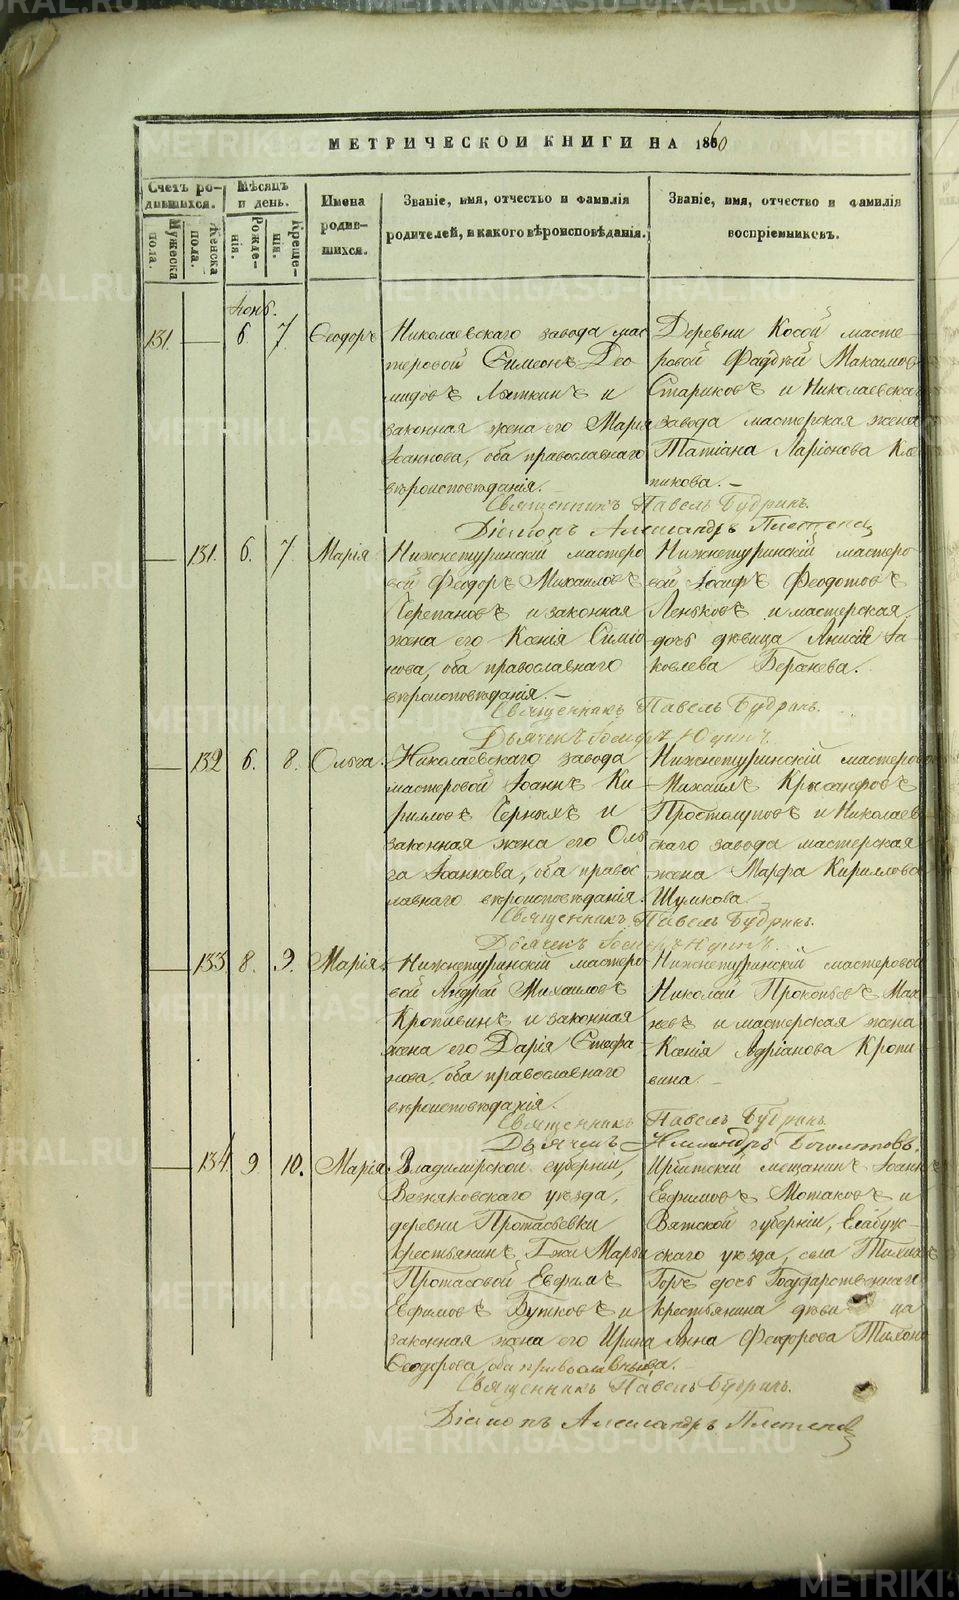 МЕТРИЧЕСКОЙ КНИГИ НА 1860
Счетъ ро-
дившихся.
Мужеска
пола.
Женска
пола.
Мѣсяцъ
и день.
Рожде-
нія.
Креще-
нія.
Имена
родив-
шихся.
Званіе, имя, отчество и фамилія
родителей, и какого вѣроисповѣданія.
Званіе, имя, отчество и фамилія
воспріемниковъ.
131. 6 7 Ѳеодоръ
Николаевскаго завода мас
теровой Симеонъ Део
мидовъ Лѣткинъ и
законная жена его Марія
Іоаннова, оба православнаго
вѣроисповѣданія.
Деревни Косой масте-
ровой Фаддѣй Максимов
Стариковъ и Николаевскаг
завода мастерская жена
Татіана Ларіонова Кле
пикова.
Священникъ Павелъ Будринъ.
Діаконъ Александръ
131. 6. 7 Марія
Нижнетуринскій мастеро
вой Ѳеодоръ Михаиловъ
Черепановъ и законная
жена его Ксенія Симео
нова, оба православнаго
вѣроисповѣданія.
Нижнетуринскій мастеро-
вой Іосифъ Ѳеодотовъ
Леньковъ и мастерская
дочь дѣвица Анисія Іа-
ковлева Бережева.
Священникъ Павелъ Будринъ.
Дьячекъ Іосифъ Юдинъ.
132 6. 8. Ольга.
Николаевскаго завода
мастеровой Іоаннъ Ки
рилловъ Черныхъ и
законная жена его Оль
га Іоаннова, оба правос
лавнаго вѣроисповѣданія.
Нижнетуринскій мастерово
Михаилъ Крысанфовъ
Простолуповъ и Николаев
скаго завода мастерская
жена Марфа Кириллова
Шумкова.
Священникъ Павелъ Будринъ.
Дьячекъ Іосифъ Юдинъ.
133 8. 9. Марія
Нижнетуринскій мастеро
вой Андрей Михаиловъ
Кропивинъ и законная
жена его Дарія Стефа
нова, оба православнаго
вѣроисповѣданія.
Нижнетуринскій мастеровой
Николай Прокопьевъ Мах
невъ и мастерская жена
Ксенія Адріанова Кропи
вина
Священникъ Павелъ Будринъ
Дьячекъ Александръ Боголѣповъ.
134. 9 10. Марія
Владимірской губерніи,
Вязниковскаго уѣзда,
деревни Протасьевки
крестьянинъ Г-жи Марьи
Протасовой Евфимъ
Евфимовъ Бутковъ и
законная жена его Ирина
Ѳеодорова, оба православныя.
Ирбитскій мещанинъ Іоаннъ
Евфимовъ Мотаковъ и
Вятской губерніи, Елабуж-
скаго уѣзда, села Тихихъ
Горъ дочь Государственнаго
крестьянина дѣвица
Анна Ѳеодорова Тихоно
Священникъ Павелъ Будринъ.
Діаконъ Александръ